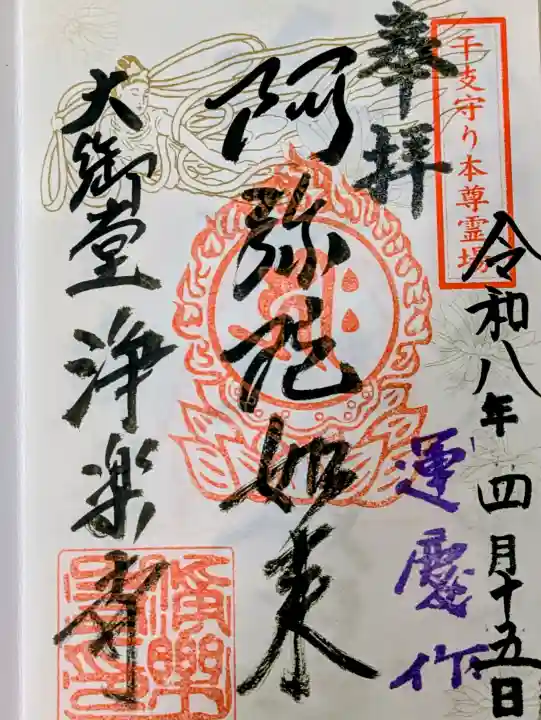 干支守り本尊霊場
令和八年四月十五日
奉拝
運慶作
阿弥陀如来
大御堂
浄楽寺